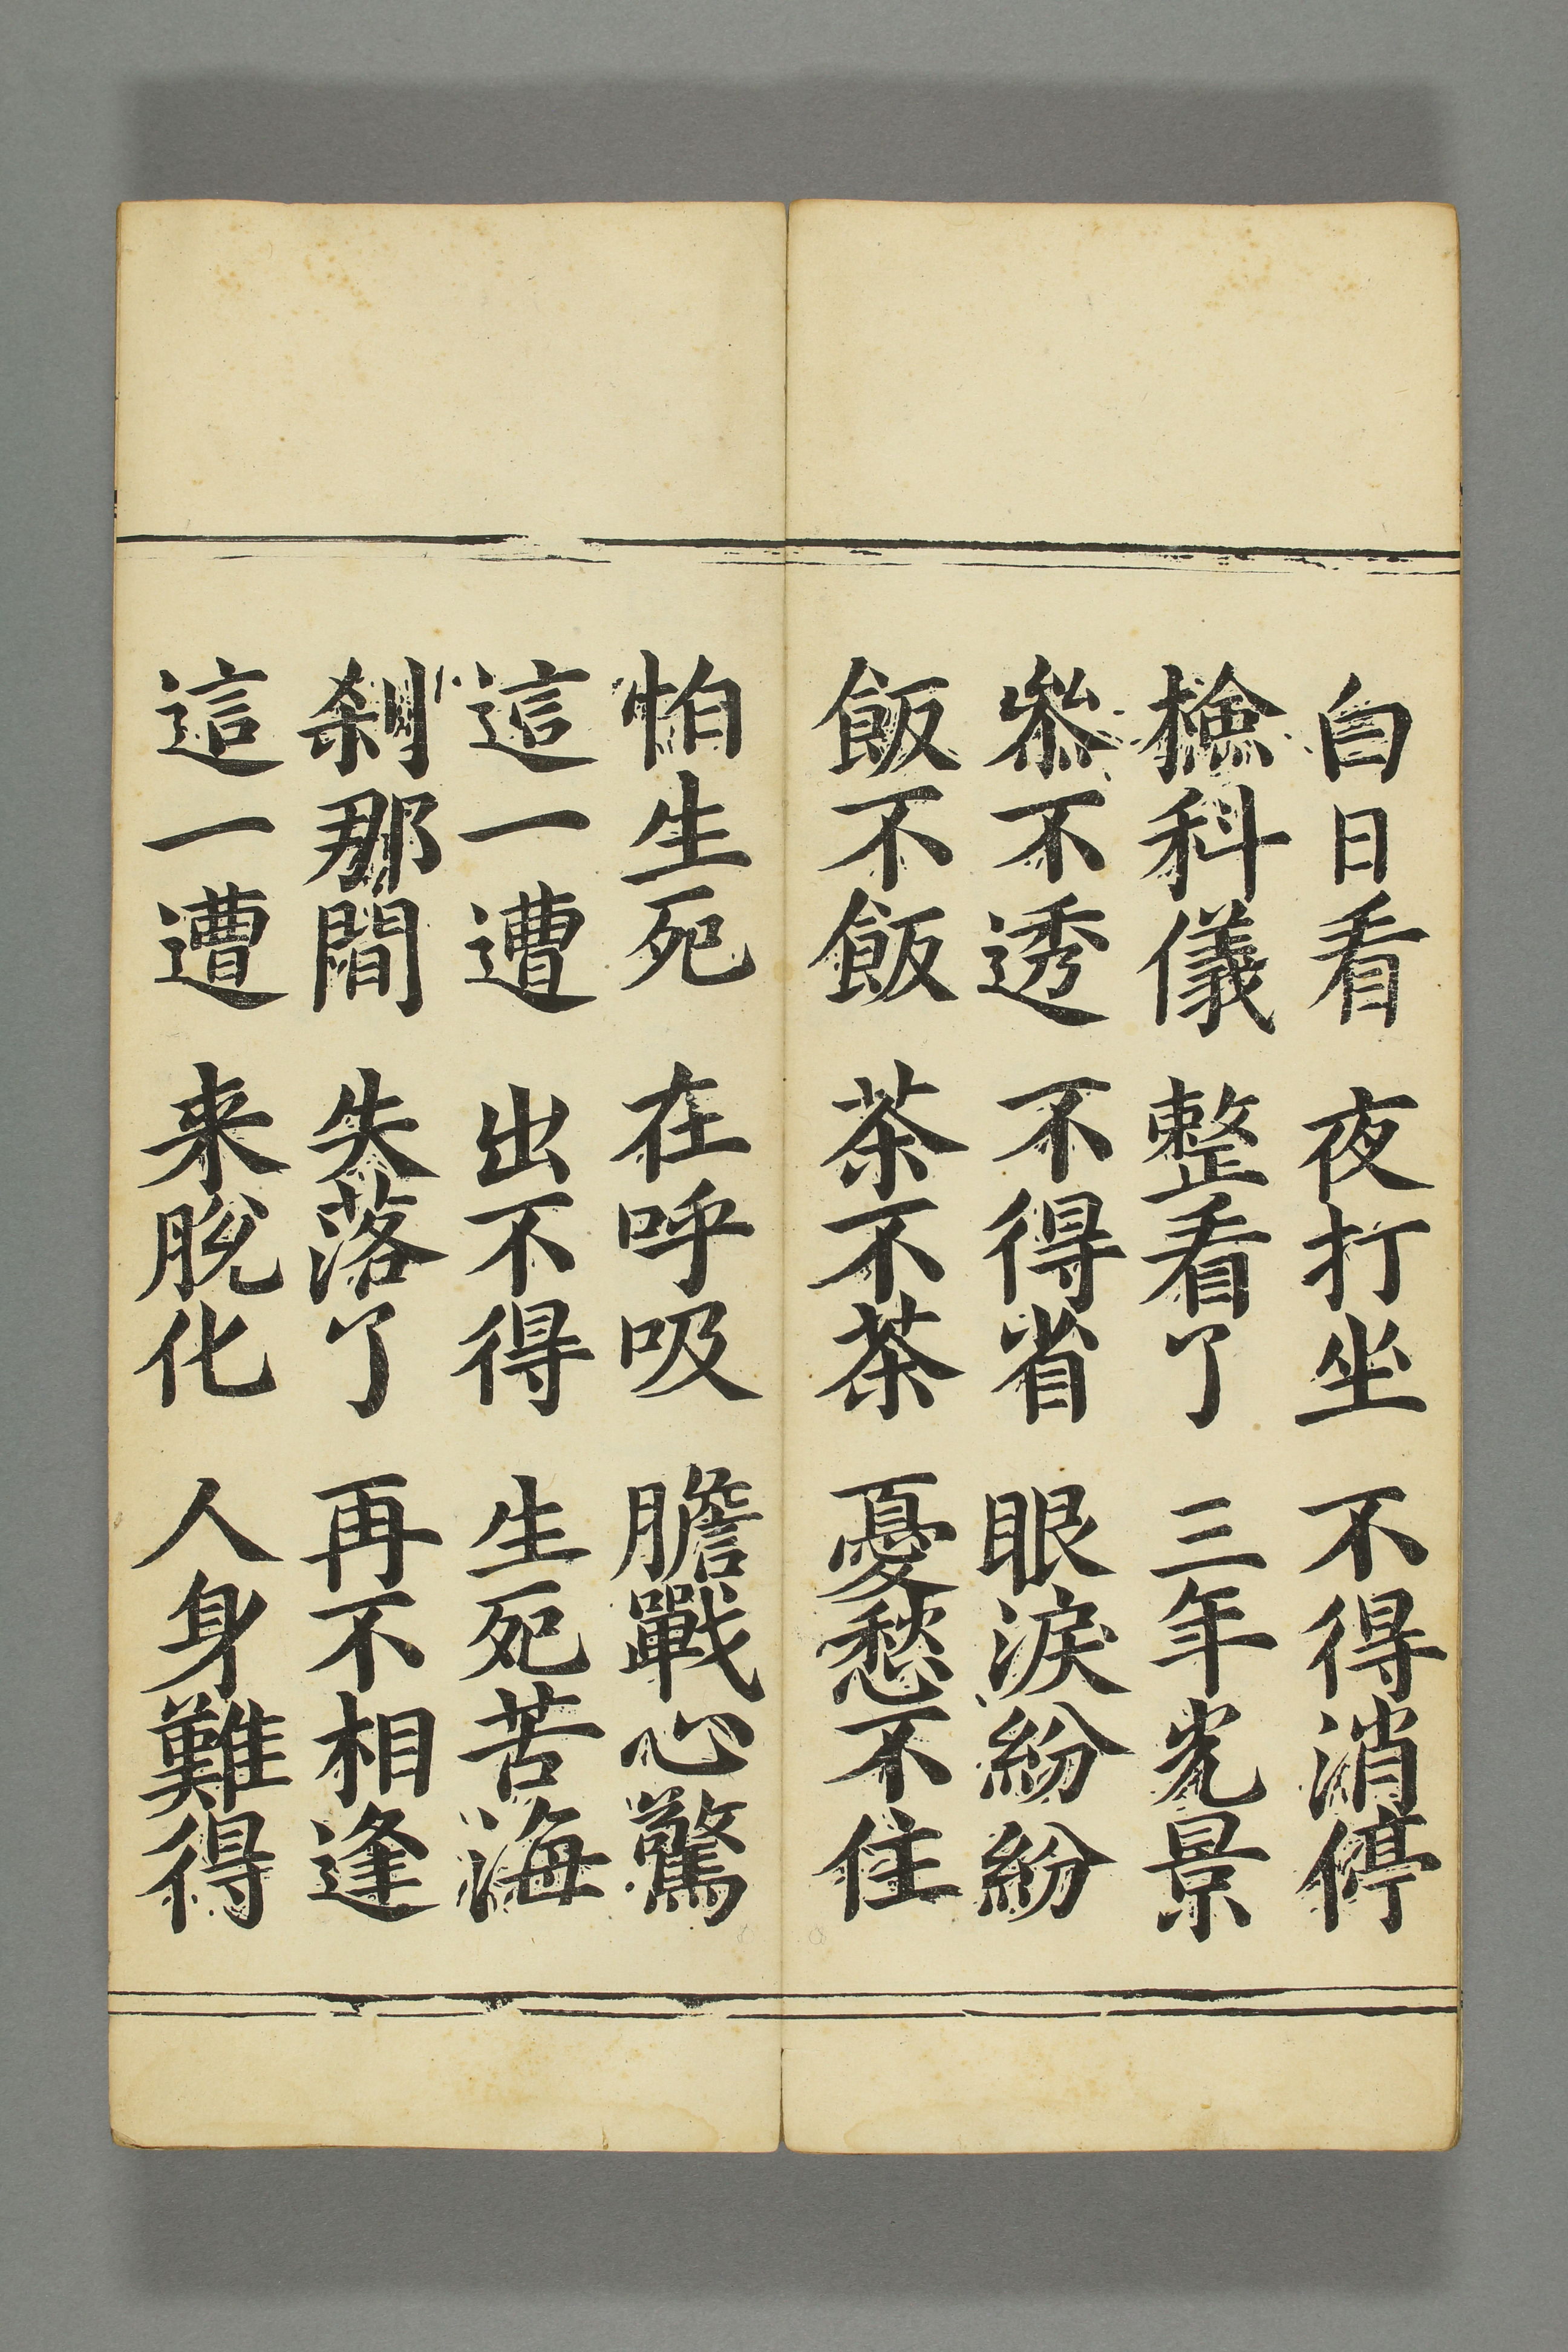 白日看 夜打坐 不得消停
撿科儀 整看了 三年光景
叅不透 不得省 眼淚紛紛
飯不飯 茶不茶 憂愁不住
怕生死 在呼吸 膽戰心驚
這一遭 出不得 生死苦海
剎那間 失落了 再不相逢
這一遭 来脫化 人身難得